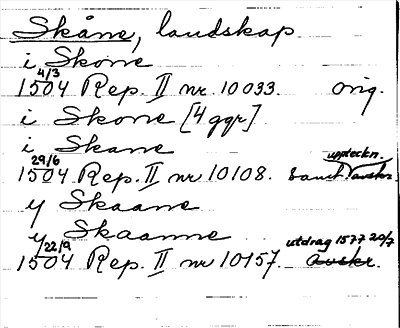 Skåne, landskap.
i Skone
4/3
1504 Rep. II nr. 10033. orig.
i Skone [4 ggr]
i Skane
29/6 uppteckn.
1504 Rep. II nr 10108. samt. avskr.
y Skaane
y Skaanne
22/9 utdrag 1577 20/7
1504 Rep. II nr 10157. avskr.